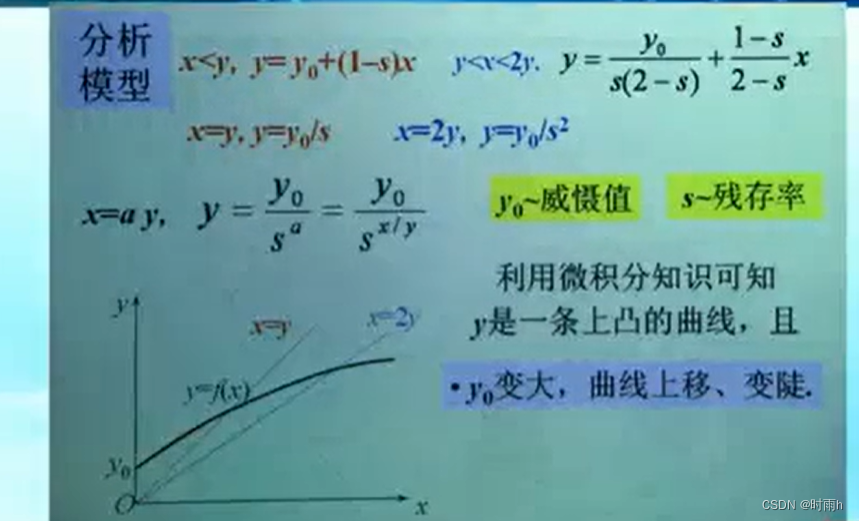 分析
模型
x<y, y= y₀+(1–s)x y<x<2y. y = y₀/(s(2 – s)) + (1 – s)/(2 – s) x
x=y, y=y₀/s x=2y, y=y₀/s²
x=a y, y = y₀/sᵃ = y₀/s^(x/y)
y₀~威慑值 s~残存率
利用微积分知识可知
y是一条上凸的曲线，且
• y₀变大，曲线上移、变陡.
y
x=y
x=2y
y=f(x)
y₀
O
x
CSDN @时雨h